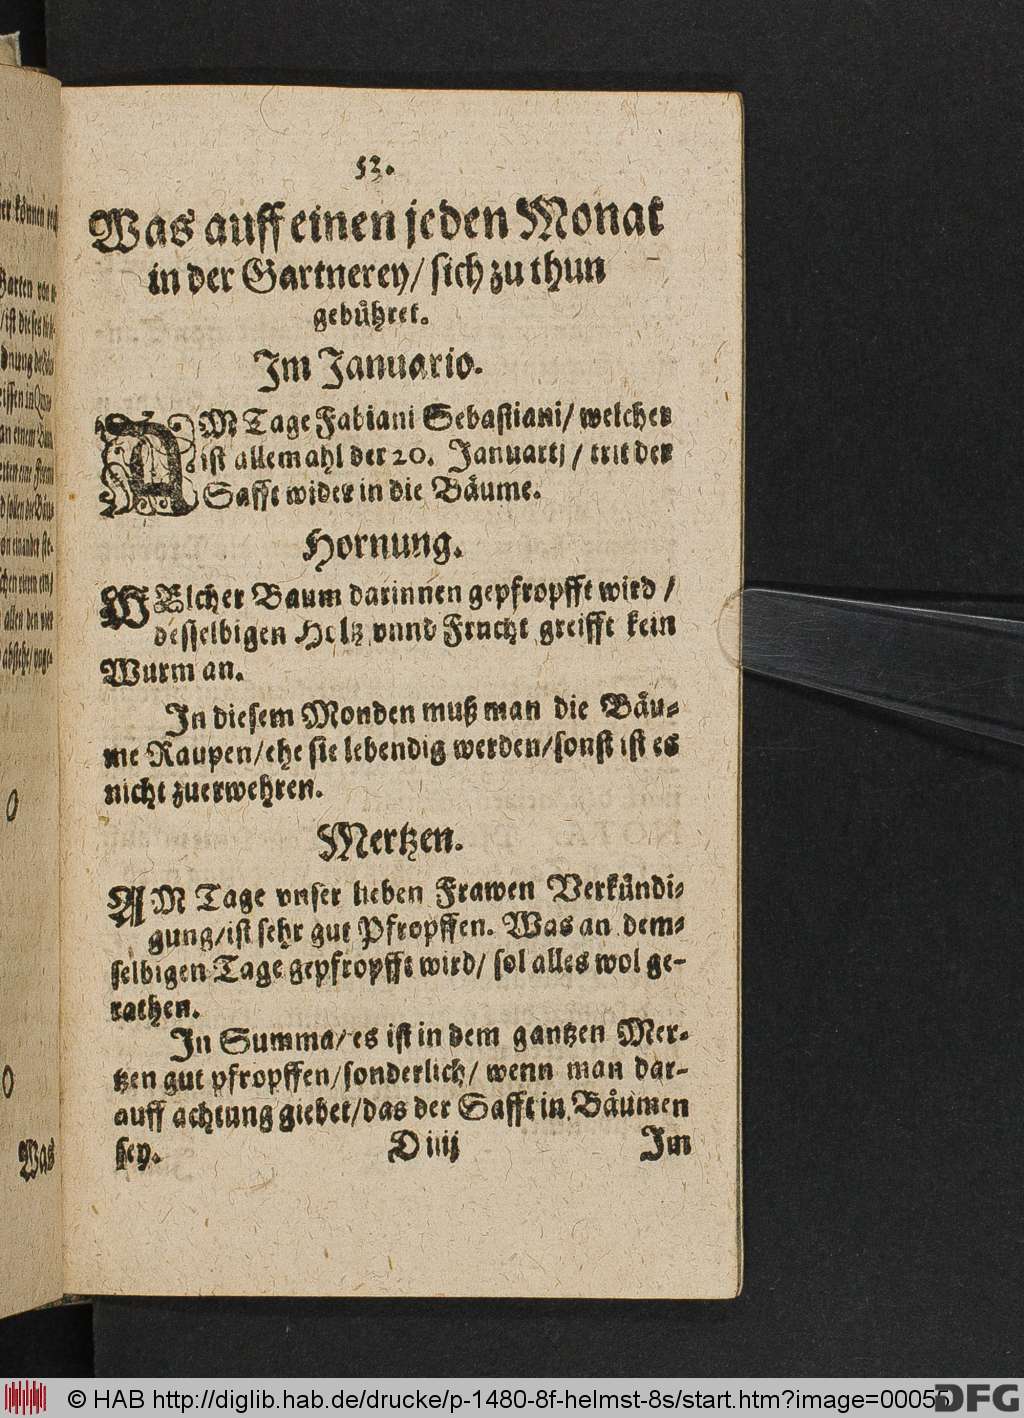 53.
Was auff einen jeden Monat
in der Gartnerey/ sich zu thun
gebühret.
Im Januario.
AM Tage Fabiani Sebastiani/ welcher
ist allemahl der 20. Januarij / trit der
Safft wider in die Bäume.
Hornung.
WElcher Baum darinnen gepfropfft wird /
desselbigen Holtz vnnd Frucht greifft kein
Wurm an.
In diesem Monden muß man die Bäu-
me Raupen/ehe sie lebendig werden/sonst ist es
nicht zuerwehren.
Mertzen.
AM Tage vnser lieben Frawen Verkündi-
gung/ist sehr gut Pfropffen. Was an dem-
selbigen Tage gepfropfft wird/ sol alles wol ge-
rathen.
In Summa/ es ist in dem gantzen Mer-
tzen gut pfropffen/sonderlich/ wenn man dar-
auff achtung giebet/das der Safft in Bäumen
sey. D iiij Im
Was
© HAB http://diglib.hab.de/drucke/p-1480-8f-helmst-8s/start.htm?image=00055
DFG